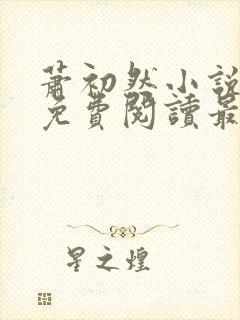 蕭初然小說
免費閱讀最
星之煌